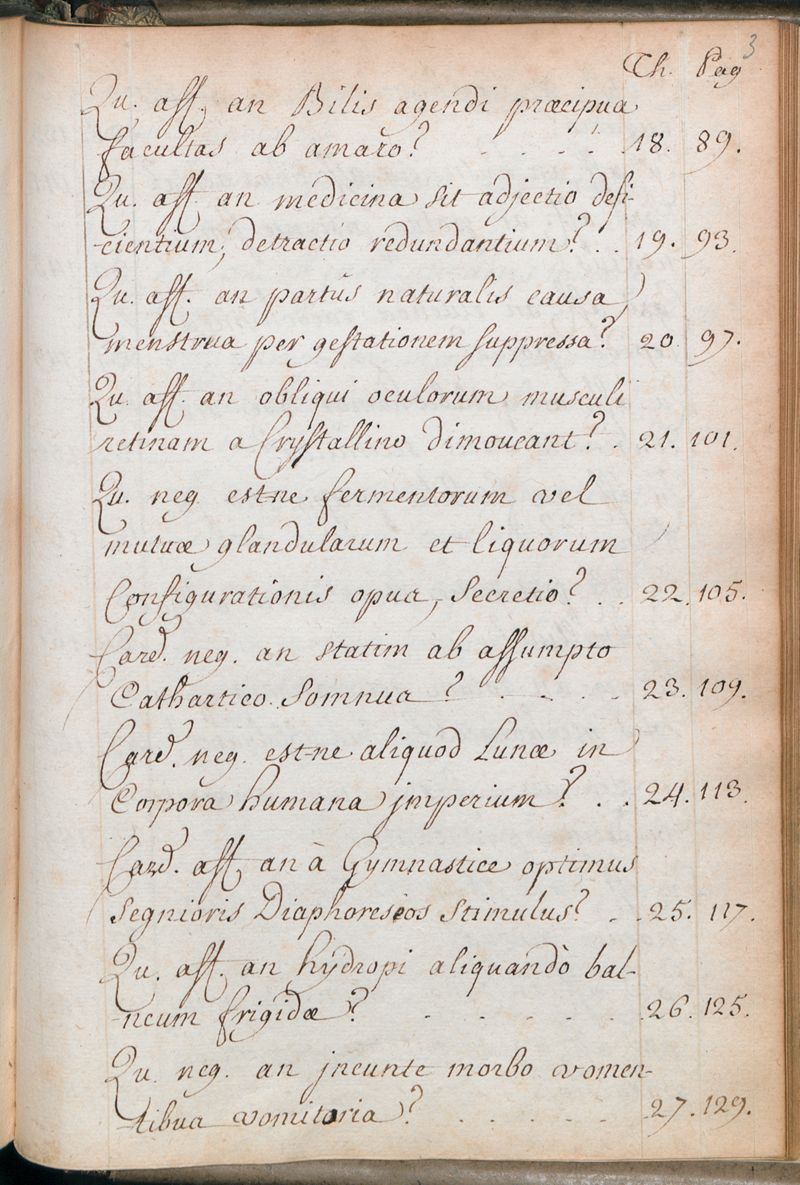 3
Th. Pag
Qu. aff. an Bilis agendi præcipua
facultas ab amaro? . . . . . 18. 89.
Qu. aff. an medicina sit adjectio defi-
cientium, detractio redundantium? . . 19. 93.
Qu. aff. an partûs naturalis causa,
menstrua per gestationem suppressa? 20. 97.
Qu. aff. an obliqui oculorum musculi
retinam a Crystallino dimoveant? . 21. 101.
Qu. neg. est-ne fermentorum vel
mutuæ glandularum et liquorum
Configurationis opus, Secretio? . . 22. 105.
Card. neg. an statim ab assumpto
Cathartico Somnus? . . . . 23. 109.
Card. neg. est-ne aliquod Lunæ in
Corpora humana jmperium? . . 24. 113.
Card. aff. an à Gymnastice optimus
Segnioris Diaphoreseos Stimulus? . . 25. 117.
Qu. aff. an hydropi aliquandò bal-
neum frigidæ? . . . . . . 26. 125.
Qu. neg. an jneunte morbo vomen-
tibus vomitoria? . . . . . 27. 129.